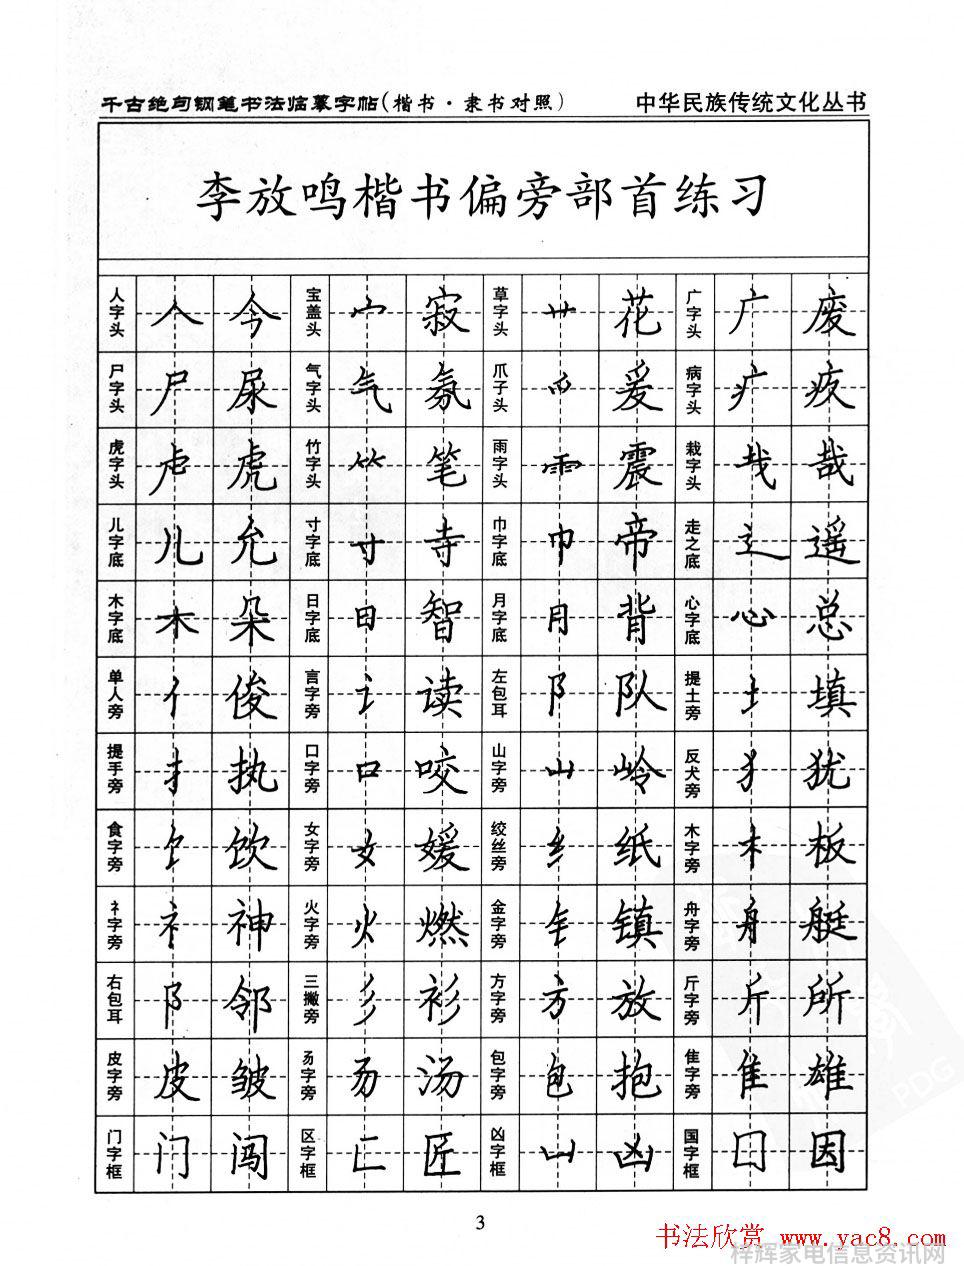 千古绝句钢笔书法临摹字帖(楷书·隶书对照) 中华民族传统文化丛书
李放鸣楷书偏旁部首练习
人字头 人 今 宝盖头 宀 寂 草字头 艹 花 广字头 广 废
尸字头 尸 尿 气字头 气 氛 爪子头 爫 爰 病字头 疒 疫
虎字头 虍 虎 竹字头 ⺮ 笔 雨字头 ⻗ 震 栽字头 𢦏 哉
儿字底 儿 允 寸字底 寸 寺 巾字底 巾 帝 走之底 辶 遥
木字底 木 朵 日字底 日 智 月字底 月 背 心字底 心 总
单人旁 亻 俊 言字旁 讠 读 左包耳 阝 队 提土旁 土 填
提手旁 扌 执 口字旁 口 咬 山字旁 山 岭 反犬旁 犭 犹
食字旁 饣 饮 女字旁 女 媛 绞丝旁 纟 纸 木字旁 木 板
礻字旁 礻 神 火字旁 火 燃 金字旁 钅 镇 舟字旁 舟 艇
右包耳 阝 邻 三撇旁 彡 衫 方字旁 方 放 斤字旁 斤 所
皮字旁 皮 皱 昜字旁 𠃓 汤 包字旁 包 抱 隹字旁 隹 雄
门字框 门 闯 区字框 匚 匠 凶字框 凵 凶 国字框 囗 因
3
书法欣赏 www.yac8.com
梓辉家电信息资讯网
PDG